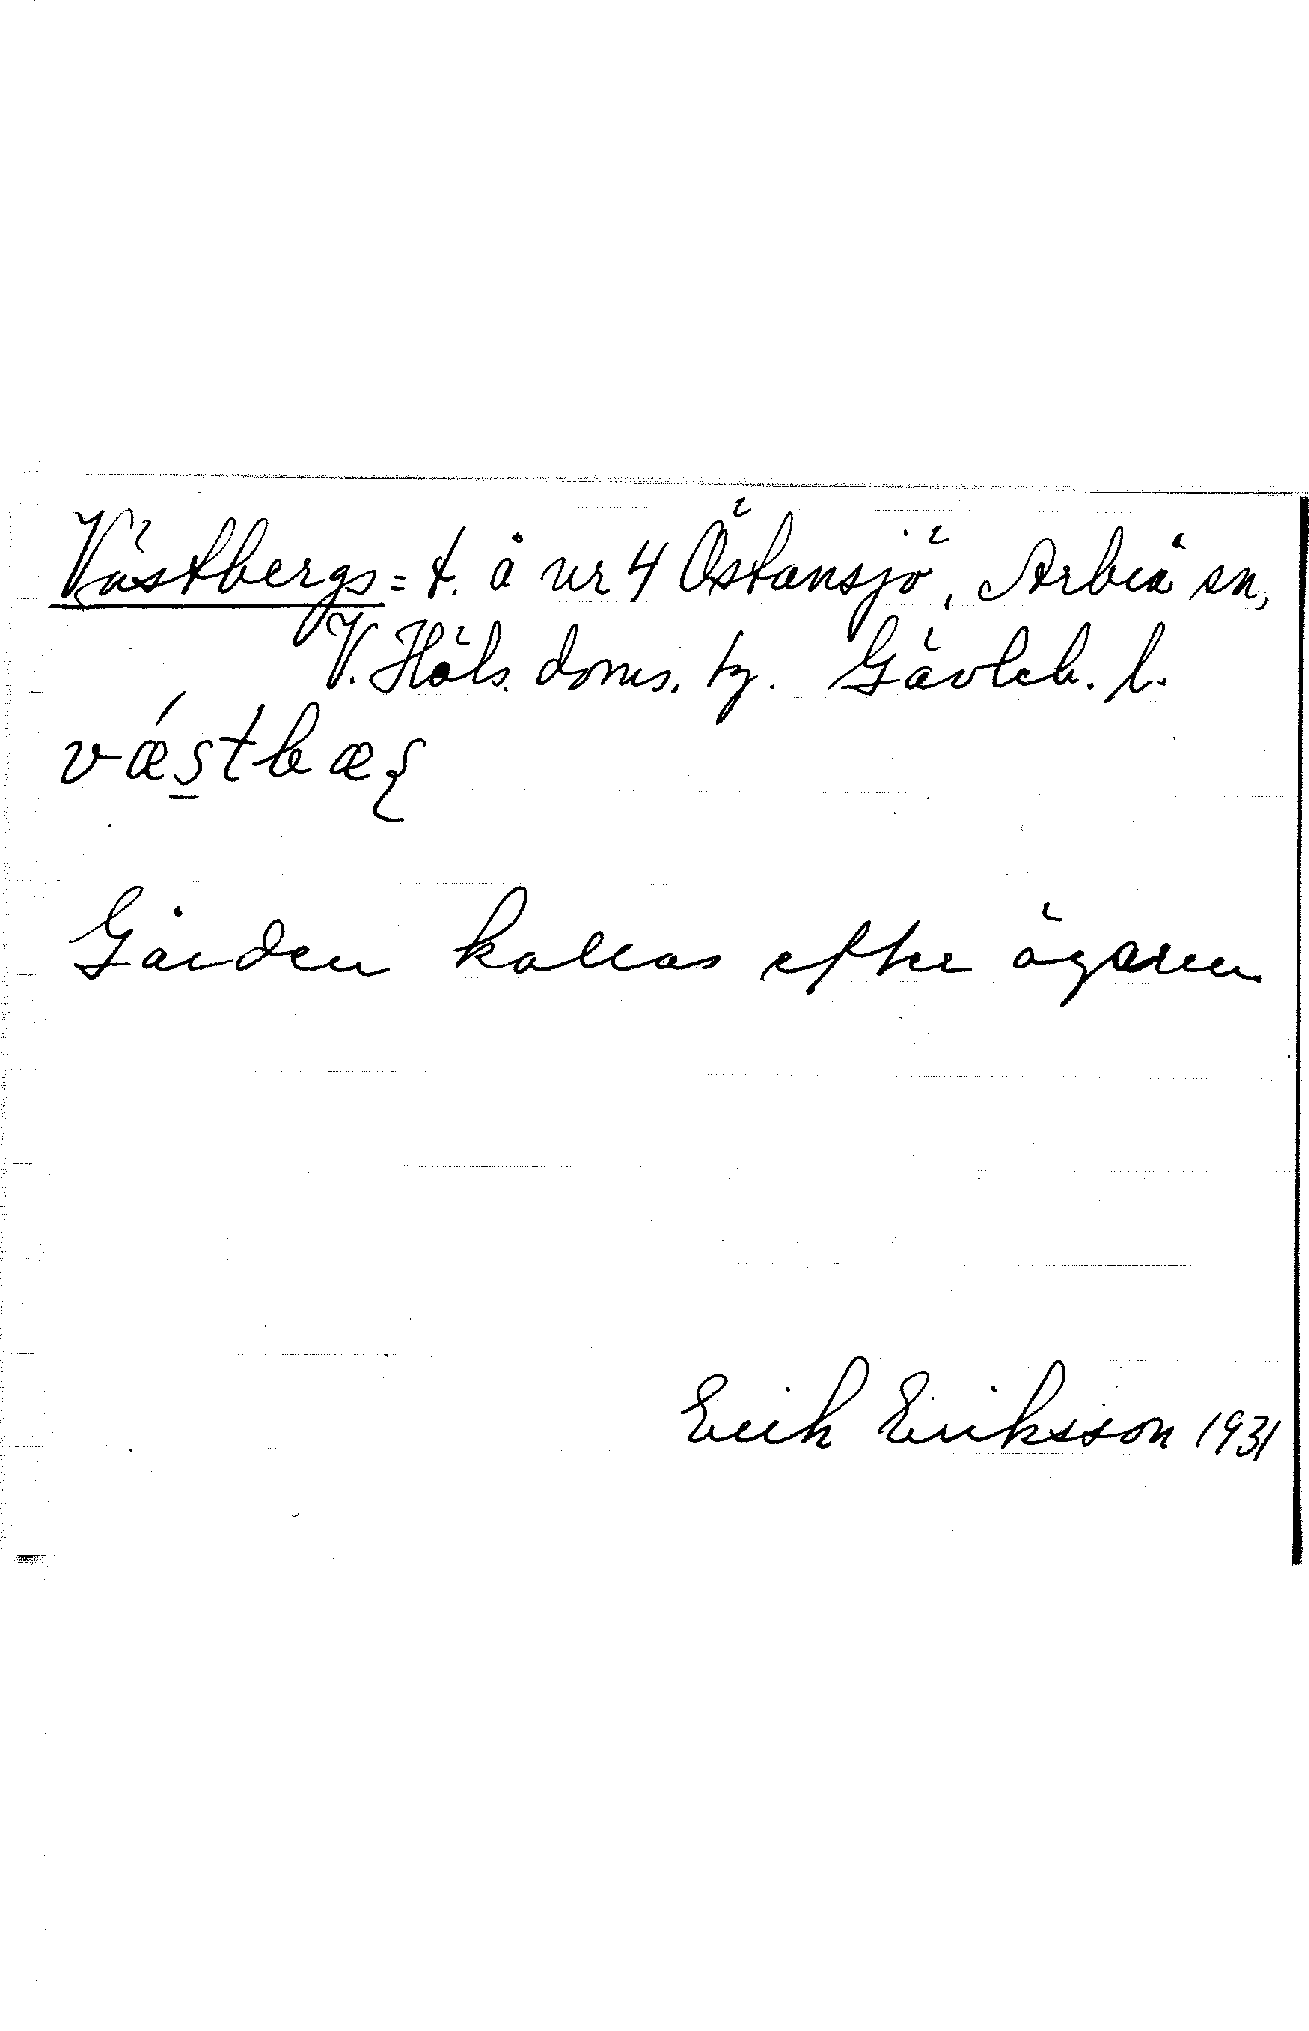 Västbergs = t. å nr 4 Östansjö, Arbrå sn,
V. Häls. doms. tg. Gävleb. l.
Gården kallas efter ägaren
Erik Eriksson 1931